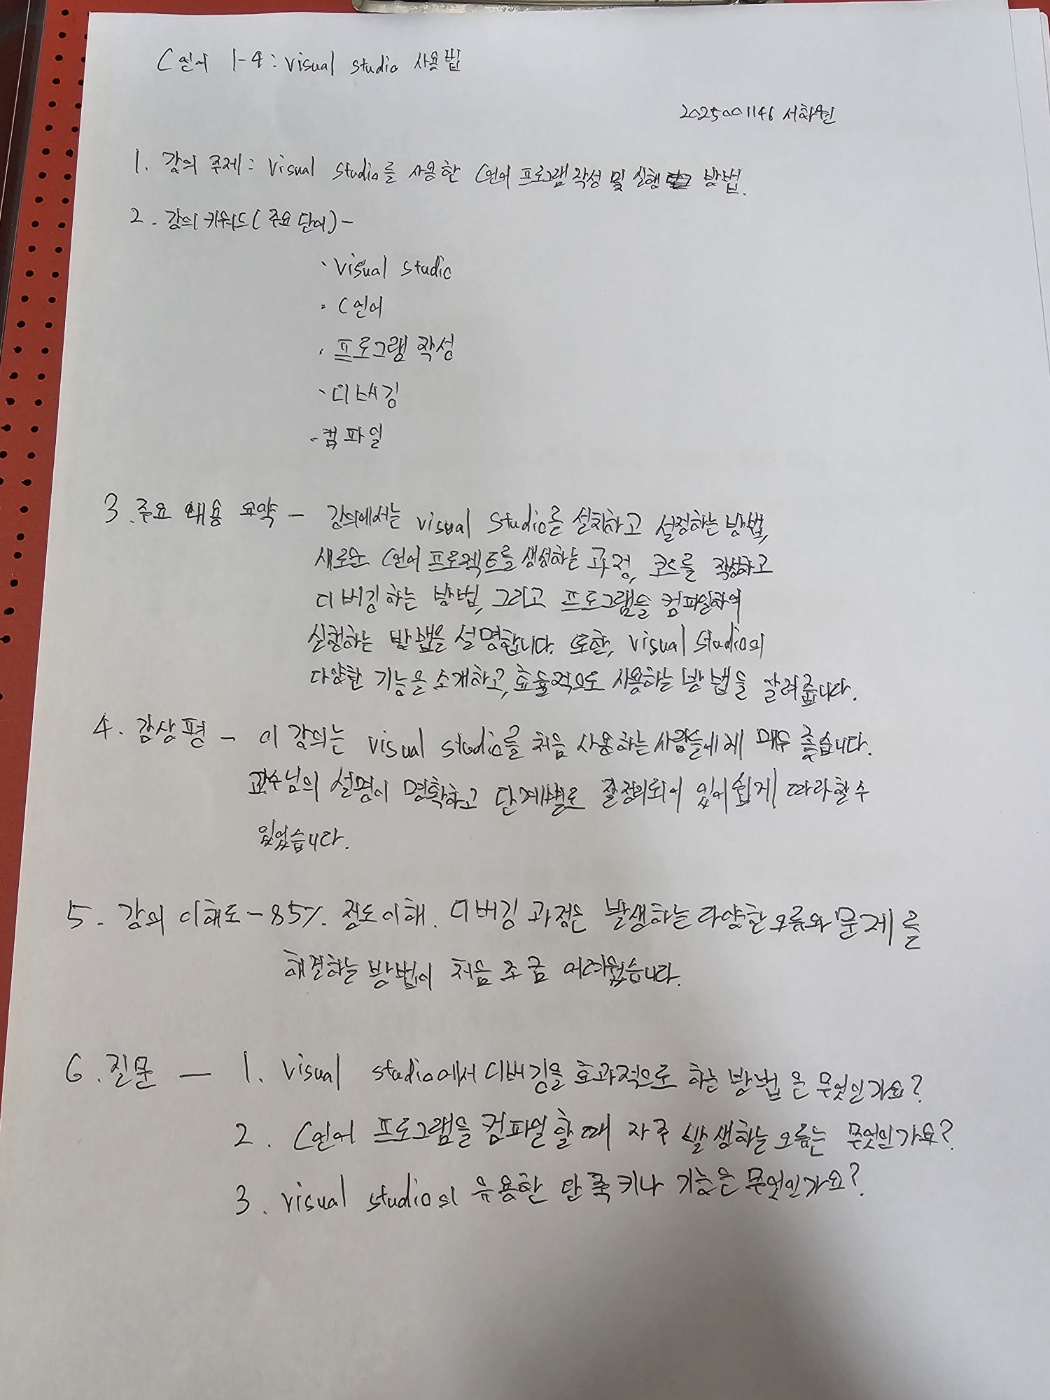 C언어 1-4: visual studio 사용법
2025001146 서하원
1. 강의 주제: visual studio를 사용한 C언어 프로그램 작성 및 실행 방법.
2. 강의 키워드(주요 단어) -
· visual studio
· C언어
· 프로그램 작성
· 디버깅
· 컴파일
3. 주요 내용 요약 - 강의에서는 visual studio를 설치하고 설정하는 방법,
새로운 C언어 프로젝트를 생성하는 과정, 코드를 작성하고
디버깅하는 방법, 그리고 프로그램을 컴파일하여
실행하는 방법을 설명합니다. 또한, visual studio의
다양한 기능을 소개하고, 효율적으로 사용하는 방법을 알려줍니다.
4. 감상평 - 이 강의는 visual studio를 처음 사용하는 사람들에게 매우 좋습니다.
교수님의 설명이 명확하고 단계별로 잘 정리되어 있어 쉽게 따라할 수
있었습니다.
5. 강의 이해도 - 85% 정도 이해. 디버깅 과정은 발생하는 다양한 오류와 문제를
해결하는 방법이 처음 조금 어려웠습니다.
6. 질문 - 1. visual studio에서 디버깅을 효과적으로 하는 방법은 무엇인가요?
2. C언어 프로그램을 컴파일 할 때 자주 발생하는 오류는 무엇인가요?
3. visual studio의 유용한 단축키나 기능은 무엇인가요?